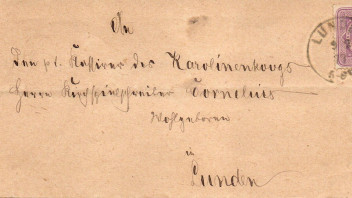 An
Den p.t. Kassirer des Karolinenkoogs
Herrn Kirchspielschreiber Cornelius
Wohlgeboren
in
Lunden
LUN